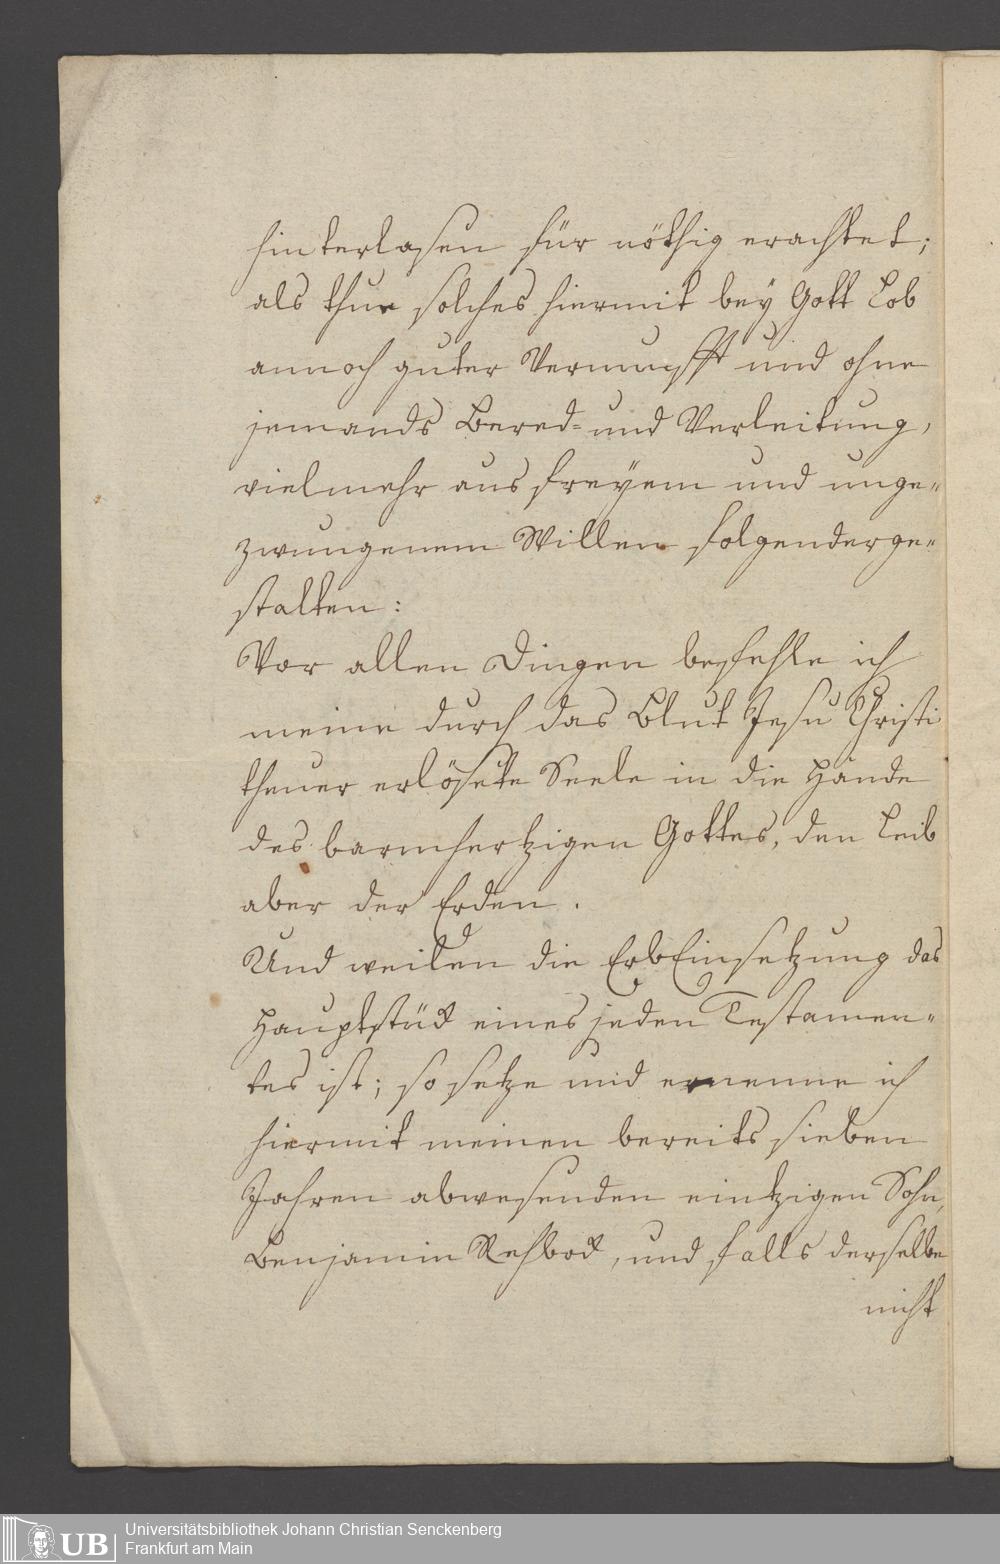 hinterlasen für nöthig erachtet;
als thue solches hiermit bey Gott Lob
annoch guter Vernunfft und ohne
jemands Bered= und Verleitung,
vielmehr aus freyem und unge=
zwungenem Willen folgenderge=
stalten:
Vor allen Dingen befehle ich
meine durch das Blut Jesu Christi
theuer erlösete Seele in die Hände
des barmhertzigen Gottes, den Leib
aber der Erden.
Und weilen die ErbEinsetzung das
Hauptstück eines jeden Testamen=
tes ist; so setze und ernenne ich
hiermit meinen bereits sieben
Jahren abwesenden eintzigen Sohn,
Benjamin Rehbock, und falls derselbe
nicht
UB
Universitätsbibliothek Johann Christian Senckenberg
Frankfurt am Main